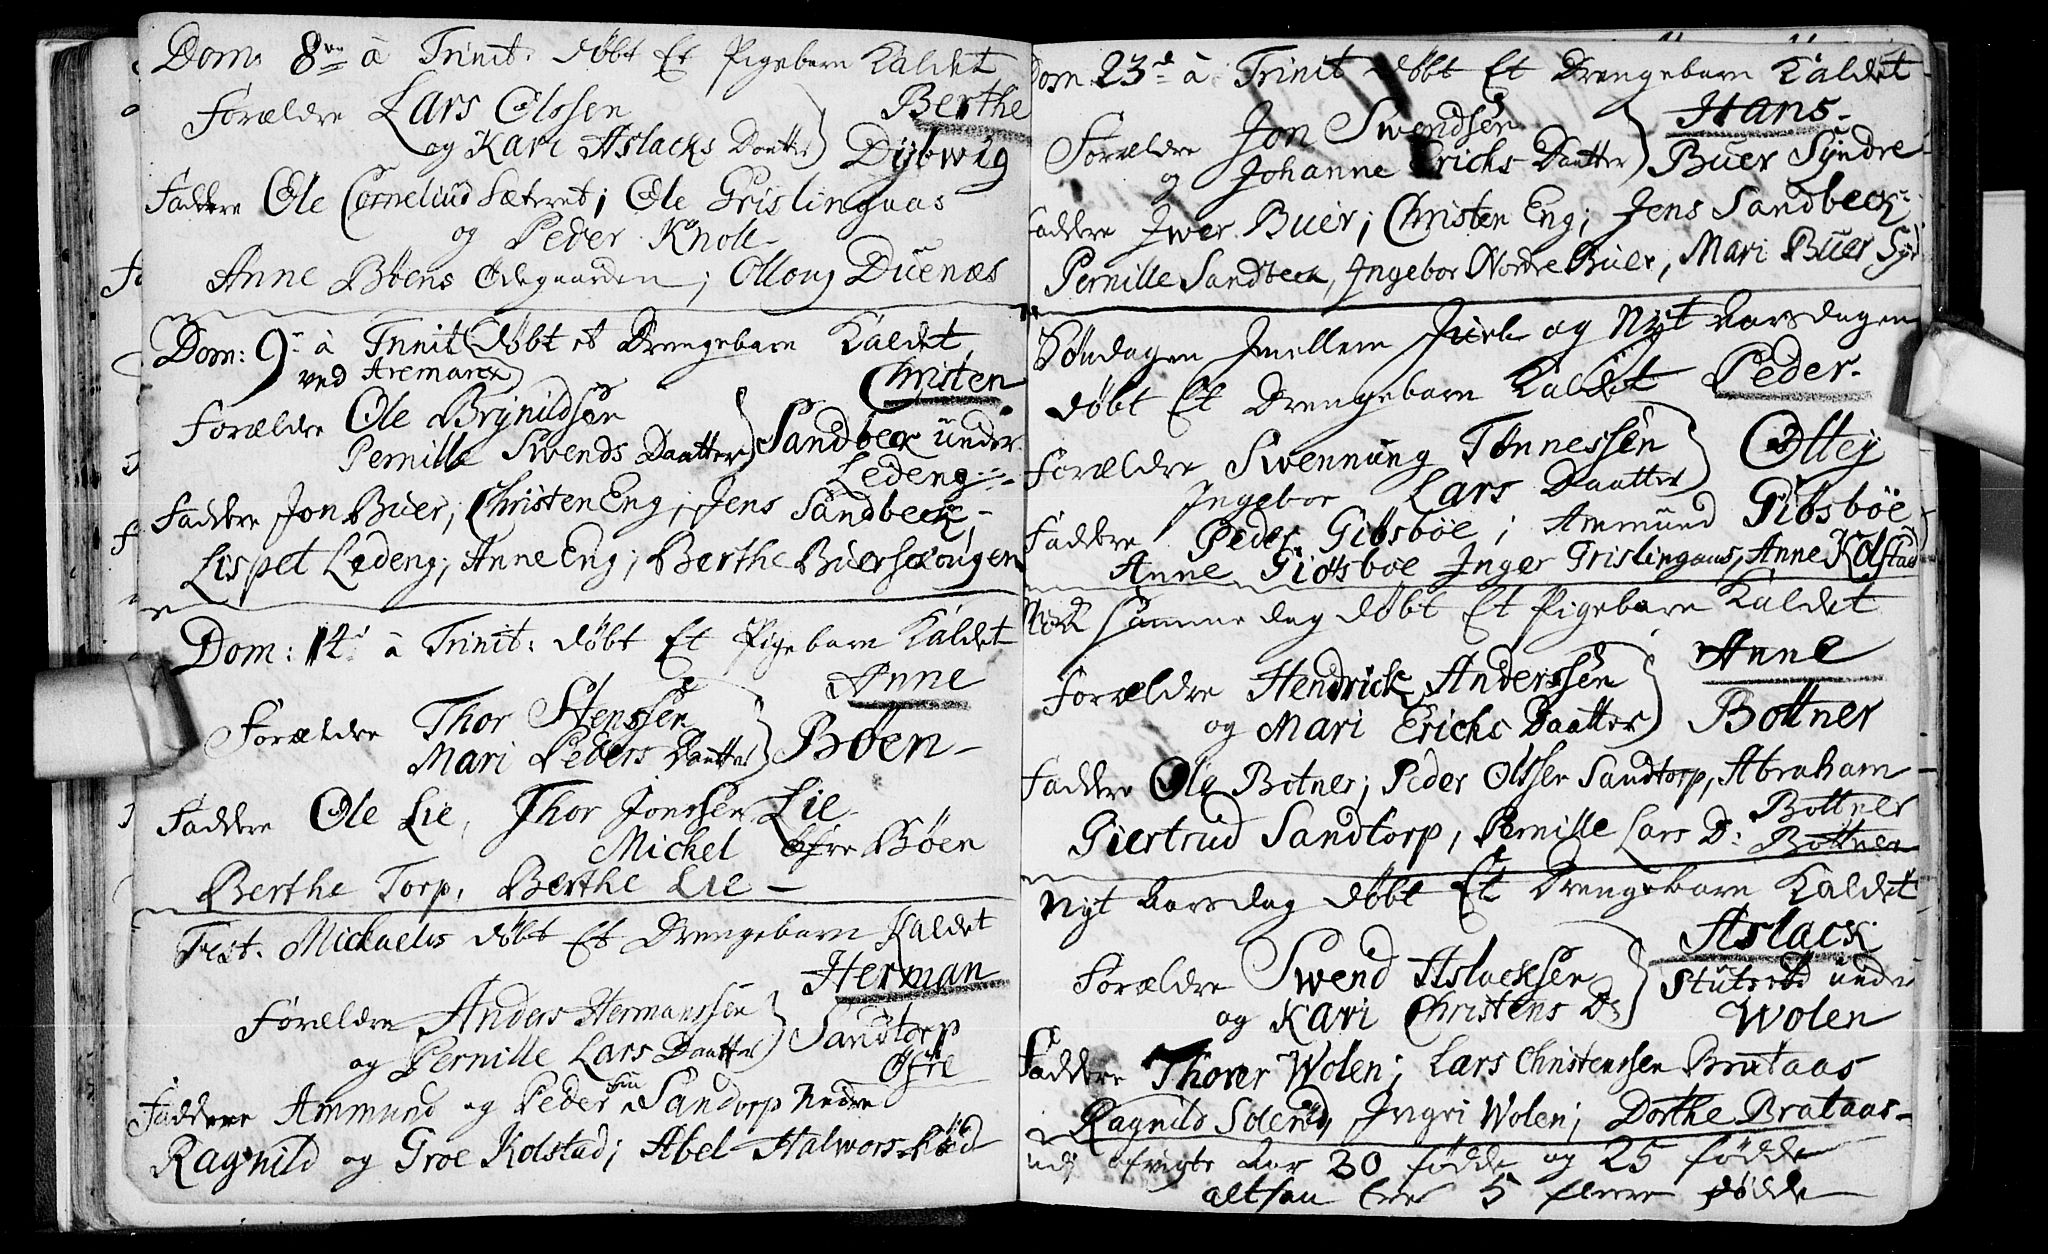 Dom: 8va â Trinit: døbt Et Pigebarn Kaldet
Berthe
Forældre Lars Olssen
og Kari Aslacks Daatter Dybwig
Faddere Ole Cornelius Sæteret; Ole Grislingaas
og Peder Knoll
Anne Böens Ødegaarden; Ollong Duenæs
Dom: 9 â Trinit døbt et Drengebarn Kaldet
ved Aremarck
Christen
Forældre Ole Brynildsen
Pernille Swends Daatter Sandbeck under
Ledeng
Faddere Jon Buer, Christen Eng, Jens Sandbeck
Lispet Ledeng, Anne Eng; Berthe Buerschougen
Dom: 14 â Trinit: døbt Et Pigebarn Kaldet
Anne
Forældre Thor Stenssen
Mari Peders Daatter Böen
Faddere Ole Lie, Thor Jonssen Lie
Michel Øfre Böen
Berthe Torp, Berthe Lie
Fest. Michaelis døbt Et Drengebarn Kaldet
Herman
Forældre Anders Hermanssen
og Pernille Lars Daatter Sandtorp
Øfre
Faddere Ammund og Peder Sandorp Nedre
Ragnild og Groe Kolstad; Abel Halworsröd
Dom 23 â Trinit døbt Et Drengebarn Kaldet
Hans
Forældre Jon Swendsen
og Johanne Erichs Daatter Buer Syndre
Faddere Jwer Buer; Christen Eng; Jens Sandbeck
Pernille Sandbeck, Jngebor Nordre Buer, Mari Buer Synd
Söndagen Jmellem Juel og Nyt Aarsdagen
døbt Et Drengebarn Kaldet Peder
Forældre Swennung Tønnessen Ottey
Jngebor Lars Daatter
Faddere Peder Gibsböe; Ammund Gibsböe
Anne Gibsböe Jnger Grislingaas, Anne Kolstad
Nock samme dag døbt Et Pigebarn Kaldet
Anne
Forældre Hendrick Anderssen
og Mari Erichs Daatter Bottner
Faddere Ole Botner; Peder Olssen Sandtorp, Abraham
Bottner
Giertrud Sandtorp, Pernille Lars D: Bottner
Nyt Aarsdag døbt Et Drengebarn Kaldet
Aslack
Forældre Swend Aslacksen
og Kari Christens D: Stutröd under
Wolen
Faddere Thorer Wolen; Lars Christenssen Brataas
Ragnild Soleröd, Jngri Wolen; Dorthe Brataas
udj afvigte Aar 30 fødde og 25 fødde
altsaa 5 fleere dødde